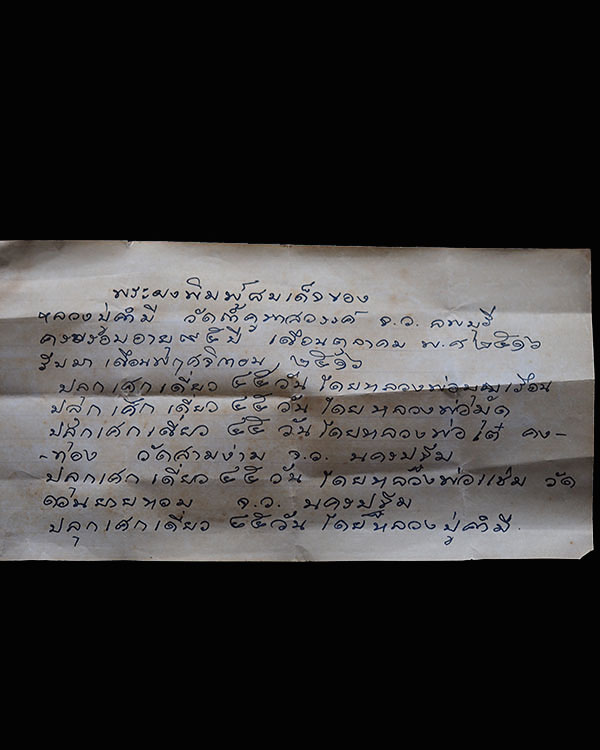 พระผงพิมพ์สมเด็จของ
หลวงปู่คำมี วัดถ้ำคูหาสวรรค์ จ.ว. ลพบุรี
ครบรอบอายุ ๘๕ ปี เดือนตุลาคม พ.ศ ๒๕๑๖
รับมา เดือนพฤศจิกายน ๒๕๑๖
ปลุกเศกเดี่ยว ๔๕ วัน โดยหลวงพ่อ
ปลุกเศกเดี่ยว ๔๕ วัน โดยหลวงพ่อมัด
ปลุกเศกเดี่ยว ๔๕ วัน โดยหลวงพ่อ เต๋ คง-
-ทอง วัดสามง่าม จ.ว. นครปฐม
ปลุกเศกเดี่ยว ๔๕ วัน โดยหลวงพ่อแช่ม วัด
ดอนยายหอม จ.ว. นครปฐม
ปลุกเศกเดี่ยว ๔๕ วัน โดยหลวงปู่คำมี.